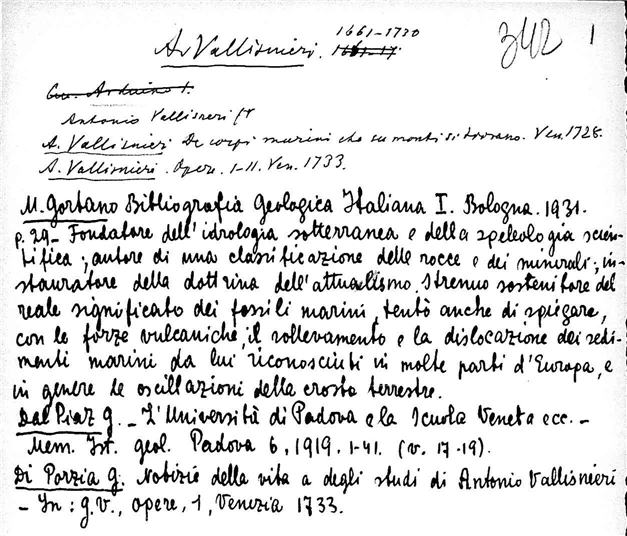 1661-1730
A. Vallisnieri. 1661-17 342 1
Gio. Arduino 1.
Antonio Vallisneri
A. Vallisnieri De corpi marini che su monti si trovano. Ven. 1728.
A. Vallisnieri. Opere. I-II. Ven. 1733.
M. Gortano Bibliografia Geologica Italiana I. Bologna. 1931.
p. 29_ Fondatore dell'idrologia sotterranea e della speleologia scien-
tifica; autore di una classificazione delle rocce e dei minerali; in-
stauratore della dottrina dell'attualismo. Strenuo sostenitore del
reale significato dei fossili marini, tentò anche di spiegare,
con le forze vulcaniche, il sollevamento e la dislocazione dei sedi-
menti marini da lui riconosciuti in molte parti d'Europa, e
in genere le oscillazioni della crosta terrestre.
Dal Piaz G. _ L'Università di Padova e la Scuola Veneta ecc. _
Mem. Ist. geol. Padova 6, 1919. 1-41. (v. 17-19).
Di Porzia G. Notizie della vita a degli studi di Antonio Vallisnieri
- In: G.V., Opere, 1, Venezia 1733.